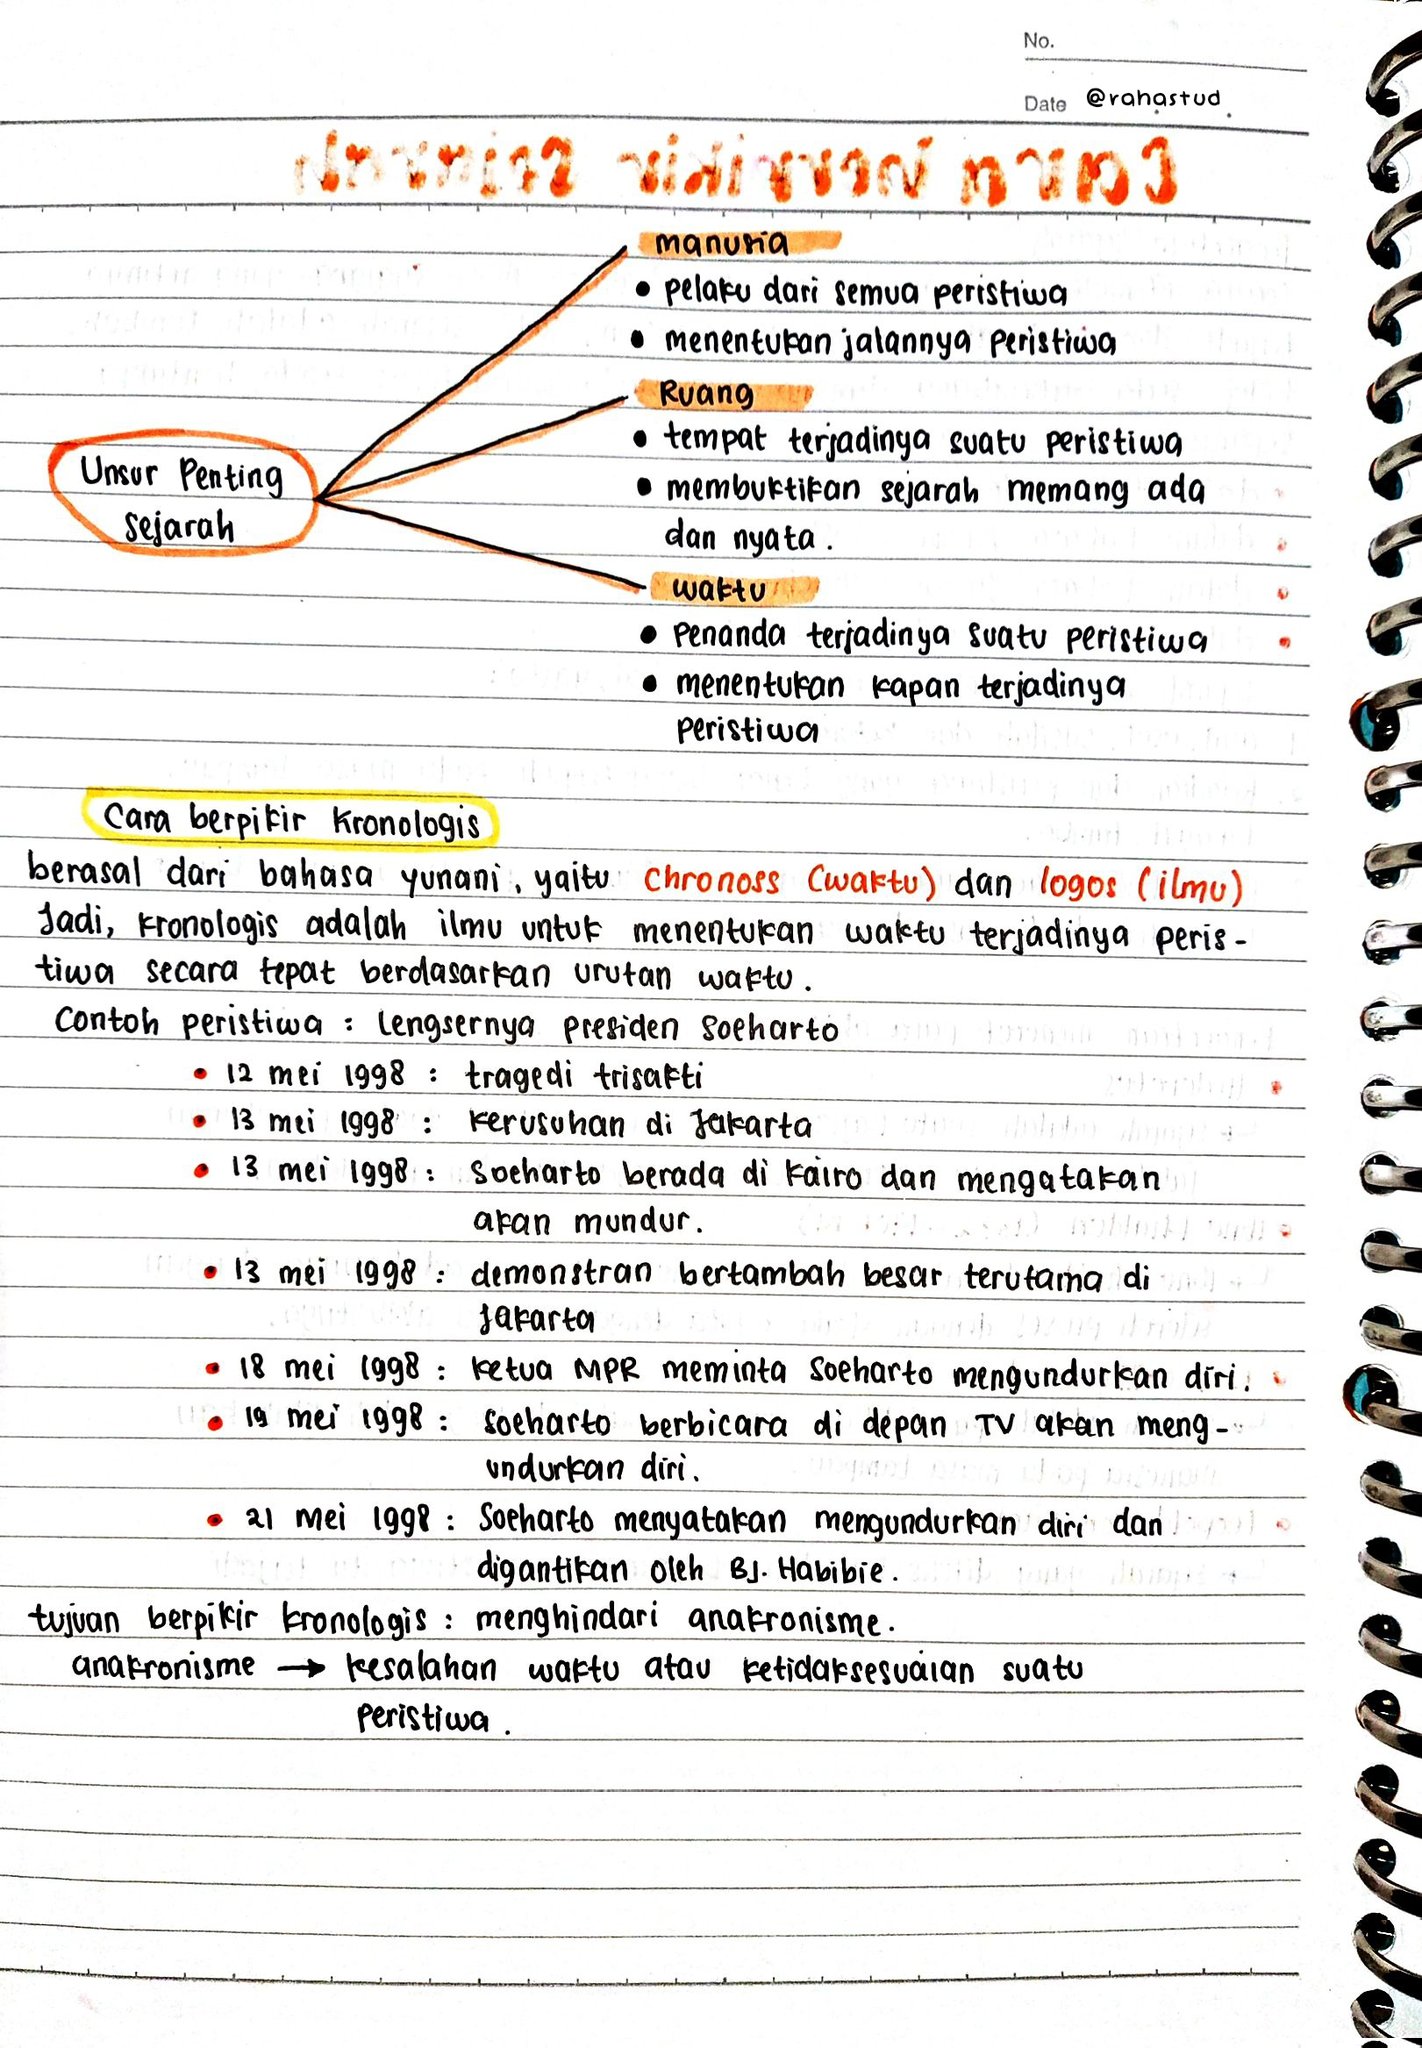 No.
Date @rahastud
manusia
• pelaku dari semua peristiwa
• menentukan jalannya peristiwa
Ruang
• tempat terjadinya suatu peristiwa
• membuktikan sejarah memang ada
dan nyata.
Unsur Penting
Sejarah
waktu
• penanda terjadinya suatu peristiwa
• menentukan kapan terjadinya
peristiwa
Cara berpikir kronologis
berasal dari bahasa yunani, yaitu chronoss (waktu) dan logos (ilmu)
Jadi, kronologis adalah ilmu untuk menentukan waktu terjadinya peris-
tiwa secara tepat berdasarkan urutan waktu.
Contoh peristiwa : lengsernya presiden Soeharto
• 12 mei 1998 : tragedi trisakti
• 13 mei 1998 : kerusuhan di Jakarta
• 13 mei 1998 : Soeharto berada di kairo dan mengatakan
akan mundur.
• 13 mei 1998 : demonstran bertambah besar terutama di
Jakarta
• 18 mei 1998 : ketua MPR meminta Soeharto mengundurkan diri.
• 19 mei 1998 : Soeharto berbicara di depan TV akan meng-
undurkan diri.
• 21 mei 1998 : Soeharto menyatakan mengundurkan diri dan
digantikan oleh BJ. Habibie.
tujuan berpikir kronologis : menghindari anakronisme.
anakronisme → kesalahan waktu atau ketidaksesuaian suatu
peristiwa.